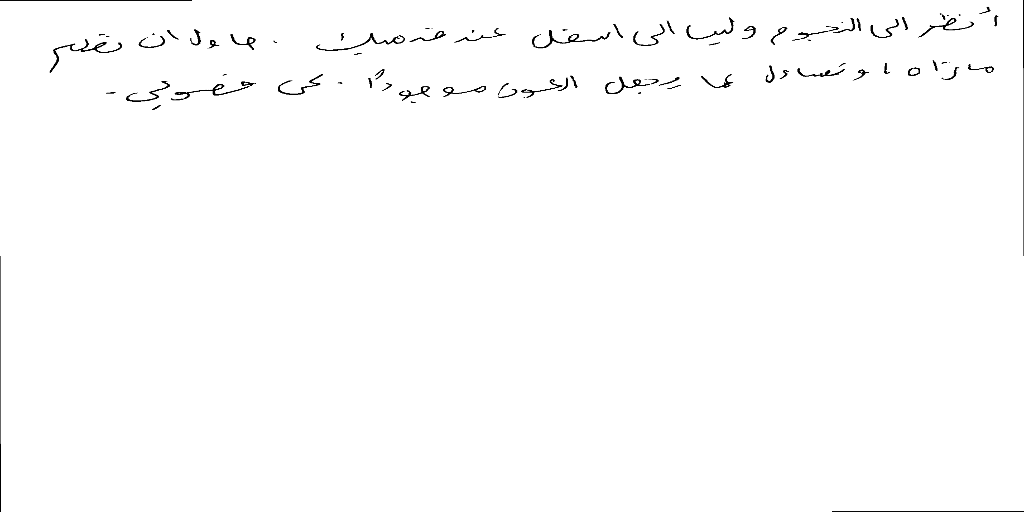 أنظر الى النجوم وليس الى اسفل عند قدميك . حاول ان تفهم
ما تراه ، و تساءل عما يجعل الكون موجوداً . كن فضولي .